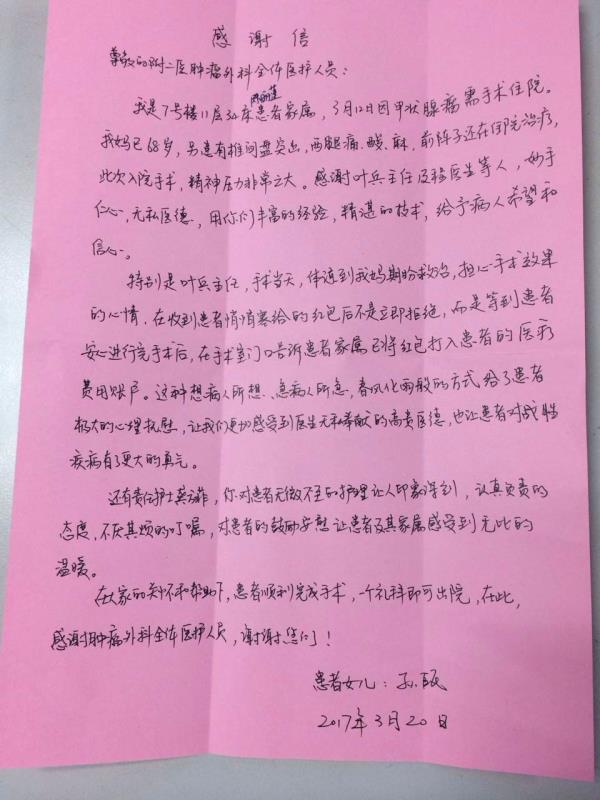 感谢信
尊敬的附二医肿瘤外科全体医护人员：
我是7号楼11层34床患者家属，3月12日因甲状腺瘤需手术住院。
我妈已68岁，另患有椎间盘突出，两腿痛、酸、麻，前阵子还在邵院治疗，
此次入院手术，精神压力非常之大。感谢叶兵主任及程医生等人，妙手
仁心，无私医德，用你们丰富的经验，精湛的技术，给予病人希望和
信心。
特别是叶兵主任，手术当天，体谅到我妈期盼救治，担心手术效果
的心情，在收到患者悄悄塞给的红包后不是立即拒绝，而是等到患者
安心进行完手术后，在手术室门口告诉患者家属已将红包打入患者的医疗
费用账户。这种想病人所想、急病人所急，春风化雨般的方式给了患者
极大的心理抚慰，让我们更加感受到医生无私奉献的高贵医德，也让患者对战胜
疾病有了更大的勇气。
还有责任护士龚方菲，你对患者无微不至的护理让人印象深刻，认真负责的
态度，不厌其烦的叮嘱，对患者的鼓励安慰让患者及其家属感受到无比的
温暖。
在大家的关怀和帮助下，患者顺利完成手术，一个礼拜即可出院，在此，
感谢肿瘤外科全体医护人员，谢谢您们！
患者女儿：孙
2017年3月20日